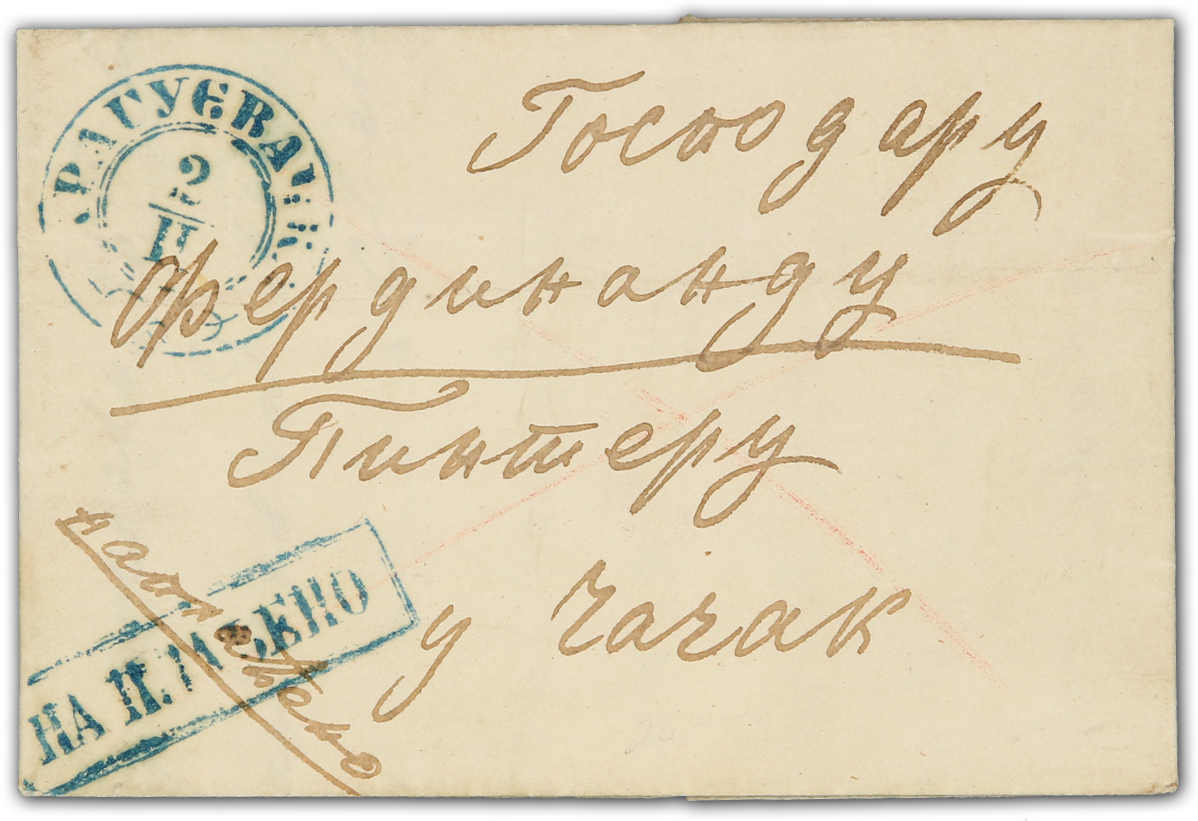 КРАГУЄВАЧК
2
II
Господару
Фердинанду
Пинтеру
у Чачак
НАПЛАЋЕНО
наплаћено